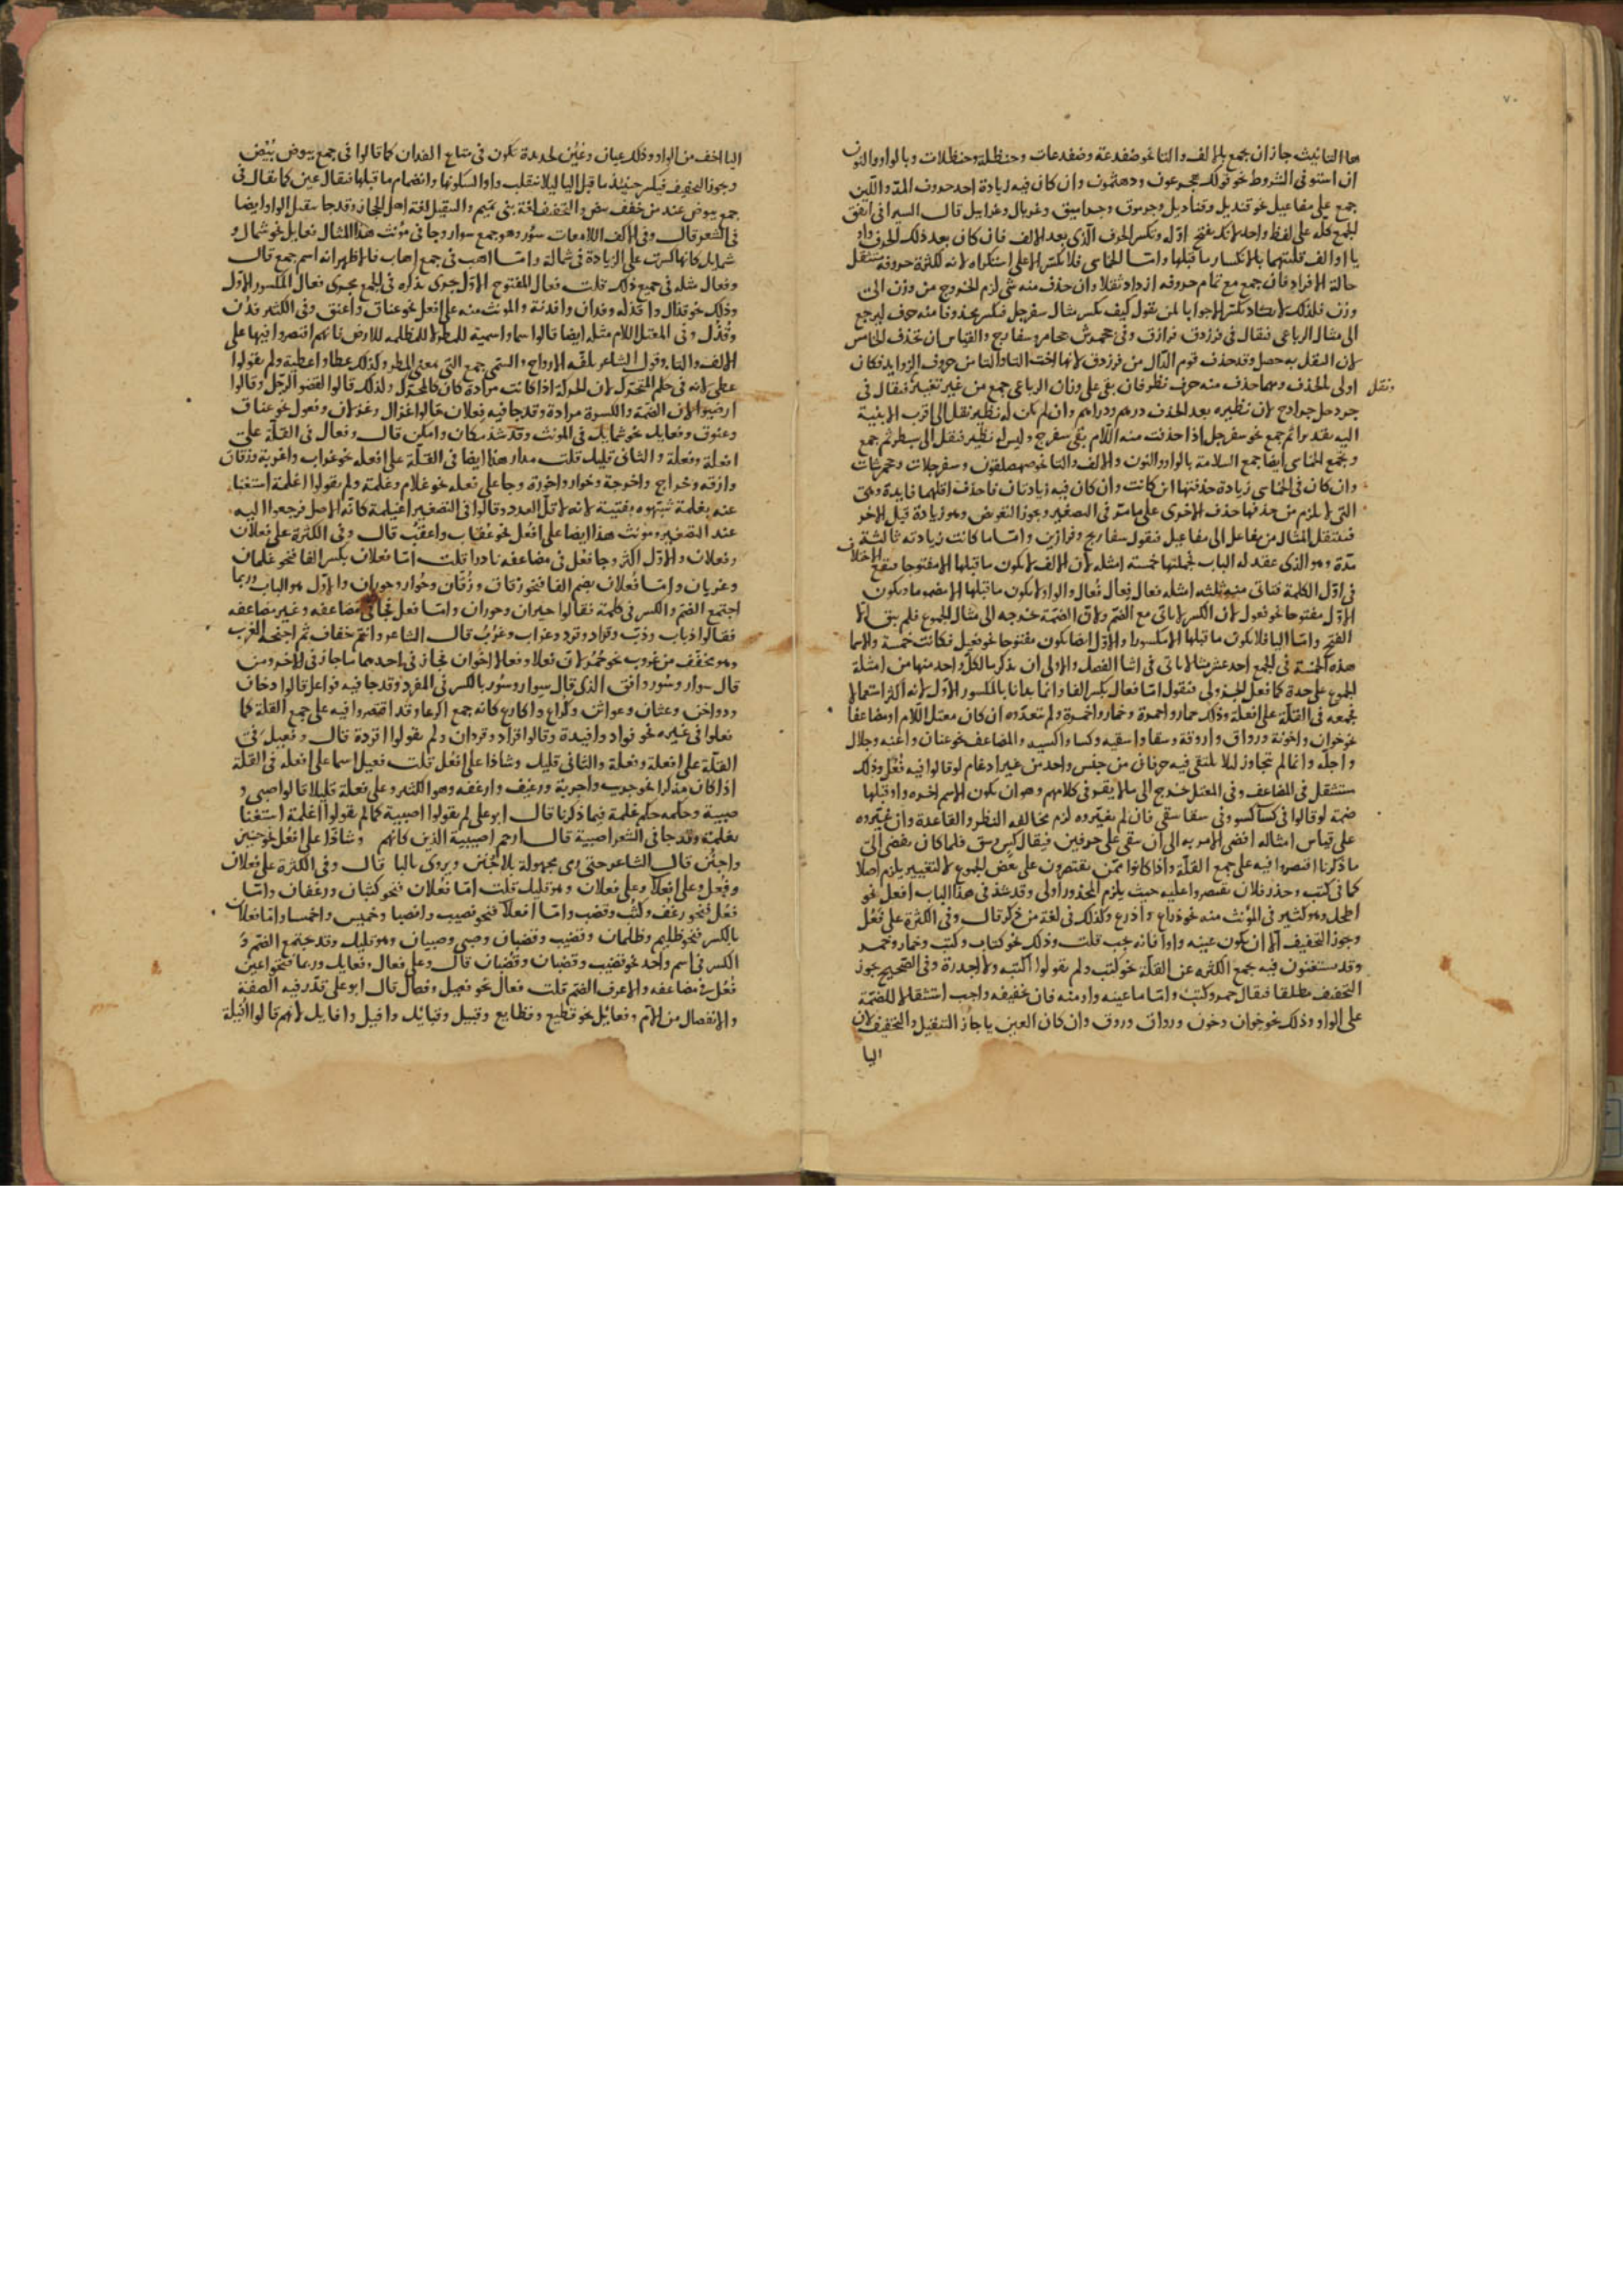 ٧٠
ها التانيث جاز ان يجمع بالالف والتا نحو ضفدعة وضفدعات وحنظلة وحنظلات وبالواو والنون
ان استوفى الشروط نحو قولك جحرعون ودهثمون وان كان فيه زيادة احد حروف المد واللين
جمع على مفاعيل نحو قنديل وقناديل وجرموق وجراميق وغربال وغرابيل قال السيرافى اتفق
الجمع كله على لفظ واحد لانك تفتح اوله وتكسر الحرف الذى بعد الالف فان كان بعد ذلك الحرف واو
يا او الف قلبتهما يا لانكسار ما قبلها واما الخماسى فلا يكسر الا على استكراه لانه لكثرة حروفه مستثقل
حالة الافراد فان جمع مع تمام حروفه ازداد ثقلا وان حذف منه شى لزم الخروج من وزن الى
وزن فلذلك لا تكاد تكسر الا جوابا لمن يقول كيف يكسر مثال سفرجل فيكسر محذوفا منه حرف ليرجع
الى مثال الرباعى فيقال فى فرزدق فرازق وفى جحمرش جحامر وسفارج والقياس ان تحذف الخامس
لان الثقل به حصل وقد حذف قوم الدال من فرزدق لانها اخت التا والتا من حروف الزوايد فكان
اولى بالحذف ومهما حذف منه حرف نظر فان بقى على وزان الرباعى جمع من غير تغيير فيقال فى
ونقل
جردحل جرادح لان نظيره بعد الحذف درهم ودراهم وان لم يكن له نظير نقل الى اقرب الابنية
اليه بقدير ثم جمع نحو سفرجل اذا حذفت منه اللام بقى سفرج وليس له نظير فنقل الى سبطر ثم جمع
ويجمع الخماسى ايضا جمع السلامة بالواو والنون والالف والتا نحو صهصلقون وسفرجلات وجحمرشات
وان كان فى الخماسى زيادة حذفتها ان كانت وان كان فيه زيادتان فاحذف اقلهما فايدة وهى
التى لا يلزم من حذفها حذف الاخرى على ما مر فى التصغير ويجوز التعويض وهو زيادة قبل الاخر
فينتقل المثال من مفاعل الى مفاعيل فيقول سفاريج وفرازيق واما ما كانت زيادته ثالثة
مدة وهو الذى عقد له الباب فجملتها خمسة امثلة لان الالف لا يكون ما قبلها الا مفتوحا فيقع الاختلاف
فى اول الكلمة فتاتى منه ثلثه امثله فعال فعال فعال والواو لا يكون ما قبلها الا مضموما ويكون
الاول مفتوحا نحو فعول لان الكسر لا ياتى مع الضم ولان الضمة خرجه الى مثال الجموع فلم يبق الا
الفتح واما اليا فلا يكون ما قبلها الا مكسورا والاول ايضا يكون مفتوحا نحو فعيل فكانت خمسة والاسما
هذه الخمسة فى الجمع احد عشر بناء ياتى فى اثنا الفصل والاولى ان يذكر ما لكل واحد منها من امثلة
الجموع على حدة كما فعل الجزولى فنقول اما فعال بكسر الفا وانما بدانا بالمكسور الاول لانه اكثر استعمالا
فجمعه فى القلة على افعلة وذلك حمار واحمرة وخمار واخمرة ولم تعدوه ان كان معتل اللام او مضاعفا
نحو خوان واخونة ورواق واروقة وسقا واسقيه وكسا واكسيه والمضاعف نحو عنان واعنه وجلال
واجله وانما لم تجاوز لئلا يلتقى فيه حرفان من جنس واحد من غير ادغام لو قالوا فيه فعل وذلك
مستثقل فى المضاعف وفى المعتل خروج الى ما لا يقر فى كلامهم وهو ان يكون الاسم اخره واو قبلها
ضمة لو قالوا فى كسا كسو وفى سقا سقى فان لم يغيروه لزم مخالفه النظر والقاعدة وان غيروه
على قياس امثاله افضى الامر به الى ان يبقى على حرفين فيقال كس وسق فلما كان يفضى الى
ما ذكرنا اقتصروا فيه على جمع القلة واذا كانوا ممن يقتصرون على بعض الجموع لا لتغيير يلزم اصلا
كما فى كتب وحذر فلان يقتصروا عليه حيث يلزم المحذور اولى وقد شذ فى هذا الباب افعل نحو
اطحل وهو كثير فى المؤنث منه نحو ذراع واذرع وكذلك فى لغة من ذكر قال وفى الكثرة على فعل
ويجوز التخفيف الا ان يكون عينه واوا فانه يجب قلت وذلك نحو كتاب وكتب وخمار وخمر
وقد يستغنون فيه بجمع الكثره عن القلة نحو كتب ولم يقولوا اكتبه ولا اجدرة وفى الصحيح يجوز
التخفيف مطلقا فيقال حمر وكتب واما ما عينه واو منه فان تخفيفه واجب استثقالا للضمة
على الواو وذلك نحو خوان وخون ورواق وروق وان كان العين يا جاز التثقيل والتخفيف لان
اليا
اليا اخف من الواو وذلك عيان وعين لحديدة تكون فى متاع الفدان كما قالوا فى جمع بيوض بيض
ويجوز التخفيف فيكسر حينئذ ما قبل اليا ليلا تنقلب واوا لسكونها وانضمام ما قبلها فيقال عين كما يقال فى
جمع بيوض عند من خفف بيض والتخفيف لغة بنى تميم والتثقيل لغة اهل الحجاز وقد جا بثقيل الواو ايضا
فى الشعر قال وفى الاكف اللامعات سور وهو جمع سوار وجا فى مؤنث هذا المثال فعايل نحو شمال و
شمايل كانها كسرت على الزيادة فى شمالة واما اهب فى جمع اهاب فالاظهر انه اسم جمع قال
وفعال مثله فى جميع ذلك قلت فعال المفتوح الاول جرى بذكره فى الجمع مجرى فعال المكسور الاول
وذلك نحو قذال واقذله وفدان وافدنة والمونث منه على افعل نحو عناق واعنق وفى الكثير فدن
وقذل وفى المعتل اللام مثله ايضا قالوا سما واسمية للمطر لا للمظلة للارض فانهم اقتصروا فيها على
الالف والتا وقول الشاعر تلفه الارواح والسمى جمع التى بمعنى المطر وكذلك عطا واعطية ولم يقولوا
عطى لانه فى حكم المتحرك لان الحركة اذا كانت مرادة كان كالمتحرك ولذلك قالوا لقضو الرجل وقالوا
ارضيوا لان الضمة والكسرة مرادة وقد جا فيه فعلان قالوا غزال وغزلان وفعول نحو عناق
وعنوق وفعايل نحو شمايل فى المونث وقد شذ مكان وامكن قال وفعال فى القلة على
افعلة وفعلة والثانى قليل قلت مدار هذا ايضا فى القلة على افعله نحو غراب واغربة وزقاق
وازقه وخراج واخرجة وحوار واحورة وجا على فعله نحو غلام وغلمة ولم يقولوا اغلمة استغنا
عنه بغلمة شبهوه بفتية لانه لاقل العدد وقالوا فى التصغير اغيلمة كانه الاصل فرجعوا اليه
عند التصغير ومونث هذا ايضا على افعل نحو عقاب واعقب قال وفى الكثرة على فعلان
وفعلان والاول اكثر وجا فعل فى مضاعفه نادرا قلت اما فعلان بكسر الفا فنحو غلمان
وغربان واما فعلان بضم الفا فنحو زقاق وزقان وحوار وحوران والاول هو الباب وربما
اجتمع الضم والكسر فى كلمة فقالوا حيران وحوران واما فعل فجا فى مضاعفه وغير مضاعفه
فقالوا ذباب وذب وقراد وقرد وغراب وغرب قال الشاعر وانتم خفاف ثم اجنحة الغرب
وهو مخفف من غروب نحو حمر لان فعلا وفعالا اخوان فجاز فى احدهما ما جاز فى الاخر ومن
قال سوار وسور وافق الذى قال سوار وسور بالكسر فى المفرد وقد جا فيه فواعل قالوا دخان
ودواخن وعثان وعواثن وكراع واكارع كانه جمع اكرعا وقد اقتصروا فيه على جمع القلة كما
فعلوا فى غيره نحو فواد وافيدة وقالوا قراد وقردان ولم يقولوا اقردة قال وفعيل فى
القلة على افعلة وفعلة والثانى قليل وشاذا على افعل قلت فعيل اسما على افعله فى القلة
اذا كان مذكرا نحو جريب واجربة ورغيف وارغفه وهو الكثير وعلى فعلة قليلا قالوا صبى و
صبية وحكمه حكم غلمة فيما ذكرنا قال ابو على لم يقولوا اصبية كما لم يقولوا اغلمة استغنا
بغلمة وقد جا فى الشعر اصبية قال ارحم اصيبية الذين كانهم وشاذا على افعل نحو جنين
واجنن قال الشاعر حتى رمى مجهولة بالاجنن ويروى باليا قال وفى الكثرة على فعلان
وفعل وعلى افعلا وعلى فعلان وهو قليل قلت اما فعلان فنحو كثبان ورغفان واما
فعل فنحو رغف وكثب وقضب واما افعلا فنحو نصيب وانصبا وخميس واخمسا واما فعلان
بالكسر فنحو ظليم وظلمان وقضيب وقضبان وصبى وصبيان وهو قليل وقد يجتمع الضم و
الكسر فى اسم واحد نحو قضيب وقضبان وقضبان قال وعلى فعال وفعايل وربما فنحوا عين
فعل فى مضاعفه والاعرف الضم قلت فعال نحو فصيل وفصال قال ابو على تقدر فيه الصفة
والانفصال من الام وفعائل نحو قطيع وقطايع وقبيل وقبائل وافيل وافايل لانهم قالوا افيلة